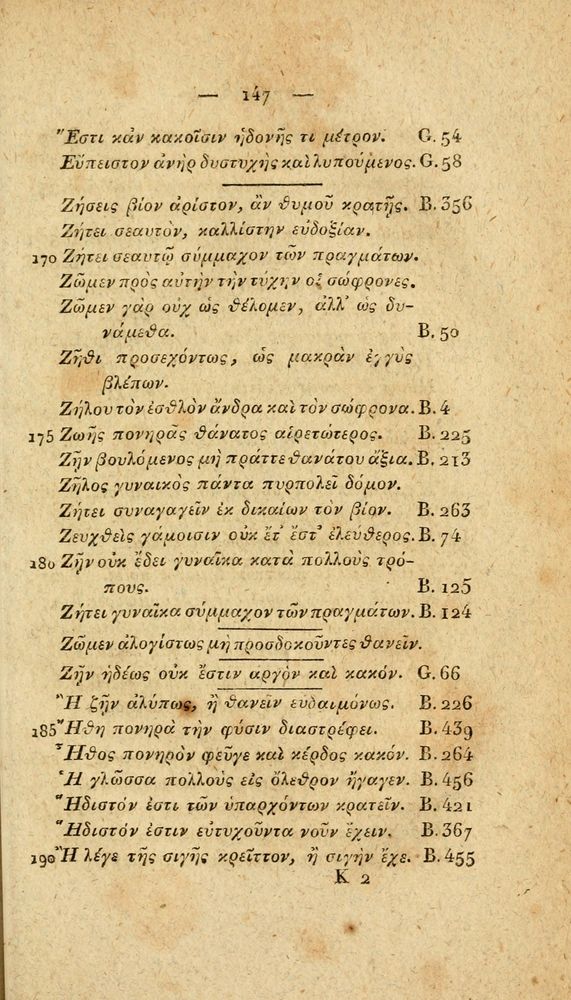 — 147 —
Ἔστι κἀν κακοῖσιν ἡδονῆς τι μέτρον. G. 54
Εὔπειστον ἀνὴρ δυστυχὴς καὶ λυπούμενος. G. 58
Ζήσεις βίον ἀρίστον, ἂν θυμοῦ κρατῇς. B. 356
Ζήτει σεαυτόν, καλλίστην εὐδοξίαν.
170 Ζήτει σεαυτῷ σύμμαχον τῶν πραγμάτων.
Ζῶμεν πρὸς αὐτὴν τὴν τύχην οἱ σώφρονες.
Ζῶμεν γὰρ οὐχ ὡς θέλομεν, ἀλλ᾽ ὡς δυ-
νάμεθα. B. 50
Ζῆθι προσεχόντως, ὡς μακρὰν ἐγγὺς
βλέπων.
Ζήλου τὸν ἐσθλὸν ἄνδρα καὶ τὸν σώφρονα. B. 4
175 Ζωῆς πονηρᾶς θάνατος αἱρετώτερος. B. 225
Ζῆν βουλόμενος μὴ πράττε θανάτου ἄξια. B. 213
Ζῆλος γυναικὸς πάντα πυρπολεῖ δόμον.
Ζήτει συναγαγεῖν ἐκ δικαίων τὸν βίον. B. 263
Ζευχθεὶς γάμοισιν οὐκ ἔτ᾽ ἔστ᾽ ἐλεύθερος. B. 74
180 Ζῆν οὐκ ἔδει γυναῖκα κατὰ πολλοὺς τρό-
πους. B. 125
Ζήτει γυναῖκα σύμμαχον τῶν πραγμάτων. B. 124
Ζῶμεν ἀλογίστως μὴ προσδοκοῦντες θανεῖν.
Ζῆν ἡδέως οὐκ ἔστιν ἀργὸν καὶ κακόν. G. 66
Ἢ ζῆν ἀλύπως, ἢ θανεῖν εὐδαιμόνως. B. 226
185 Ἤθη πονηρὰ τὴν φύσιν διαστρέφει. B. 439
Ἦθος πονηρὸν φεῦγε καὶ κέρδος κακόν. B. 264
Ἡ γλῶσσα πολλοὺς εἰς ὄλεθρον ἤγαγεν. B. 456
Ἥδιστόν ἐστι τῶν ὑπαρχόντων κρατεῖν. B. 421
Ἥδιστόν ἐστιν εὐτυχοῦντα νοῦν ἔχειν. B. 367
190 Ἢ λέγε τῆς σιγῆς κρεῖττον, ἢ σιγὴν ἔχε. B. 455
K 2